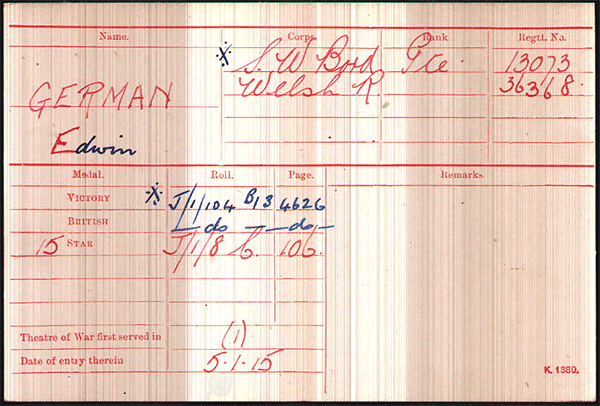 Name. Corps. Rank Regtl. No.
※ S. W Bord Pte. 13073
GERMAN Welsh R 36368.
Edwin
Medal. Roll. Page. Remarks.
VICTORY ※ J/1/104 B13 4626
BRITISH — do — — do —
15 STAR J/1/8 C. 106.
Theatre of War first served in (1)
Date of entry therein 5.1.15
K. 1380.